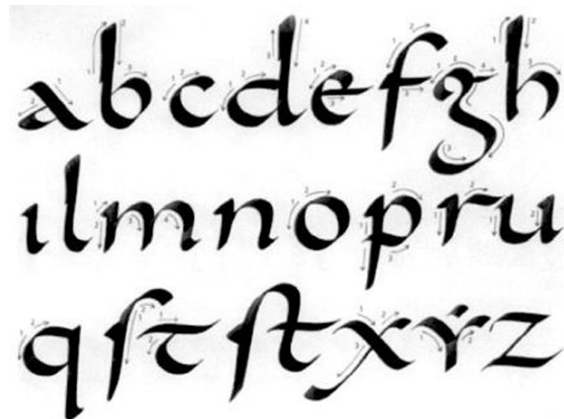 abcdefgh
ılmnopru
qſτſtxẏz